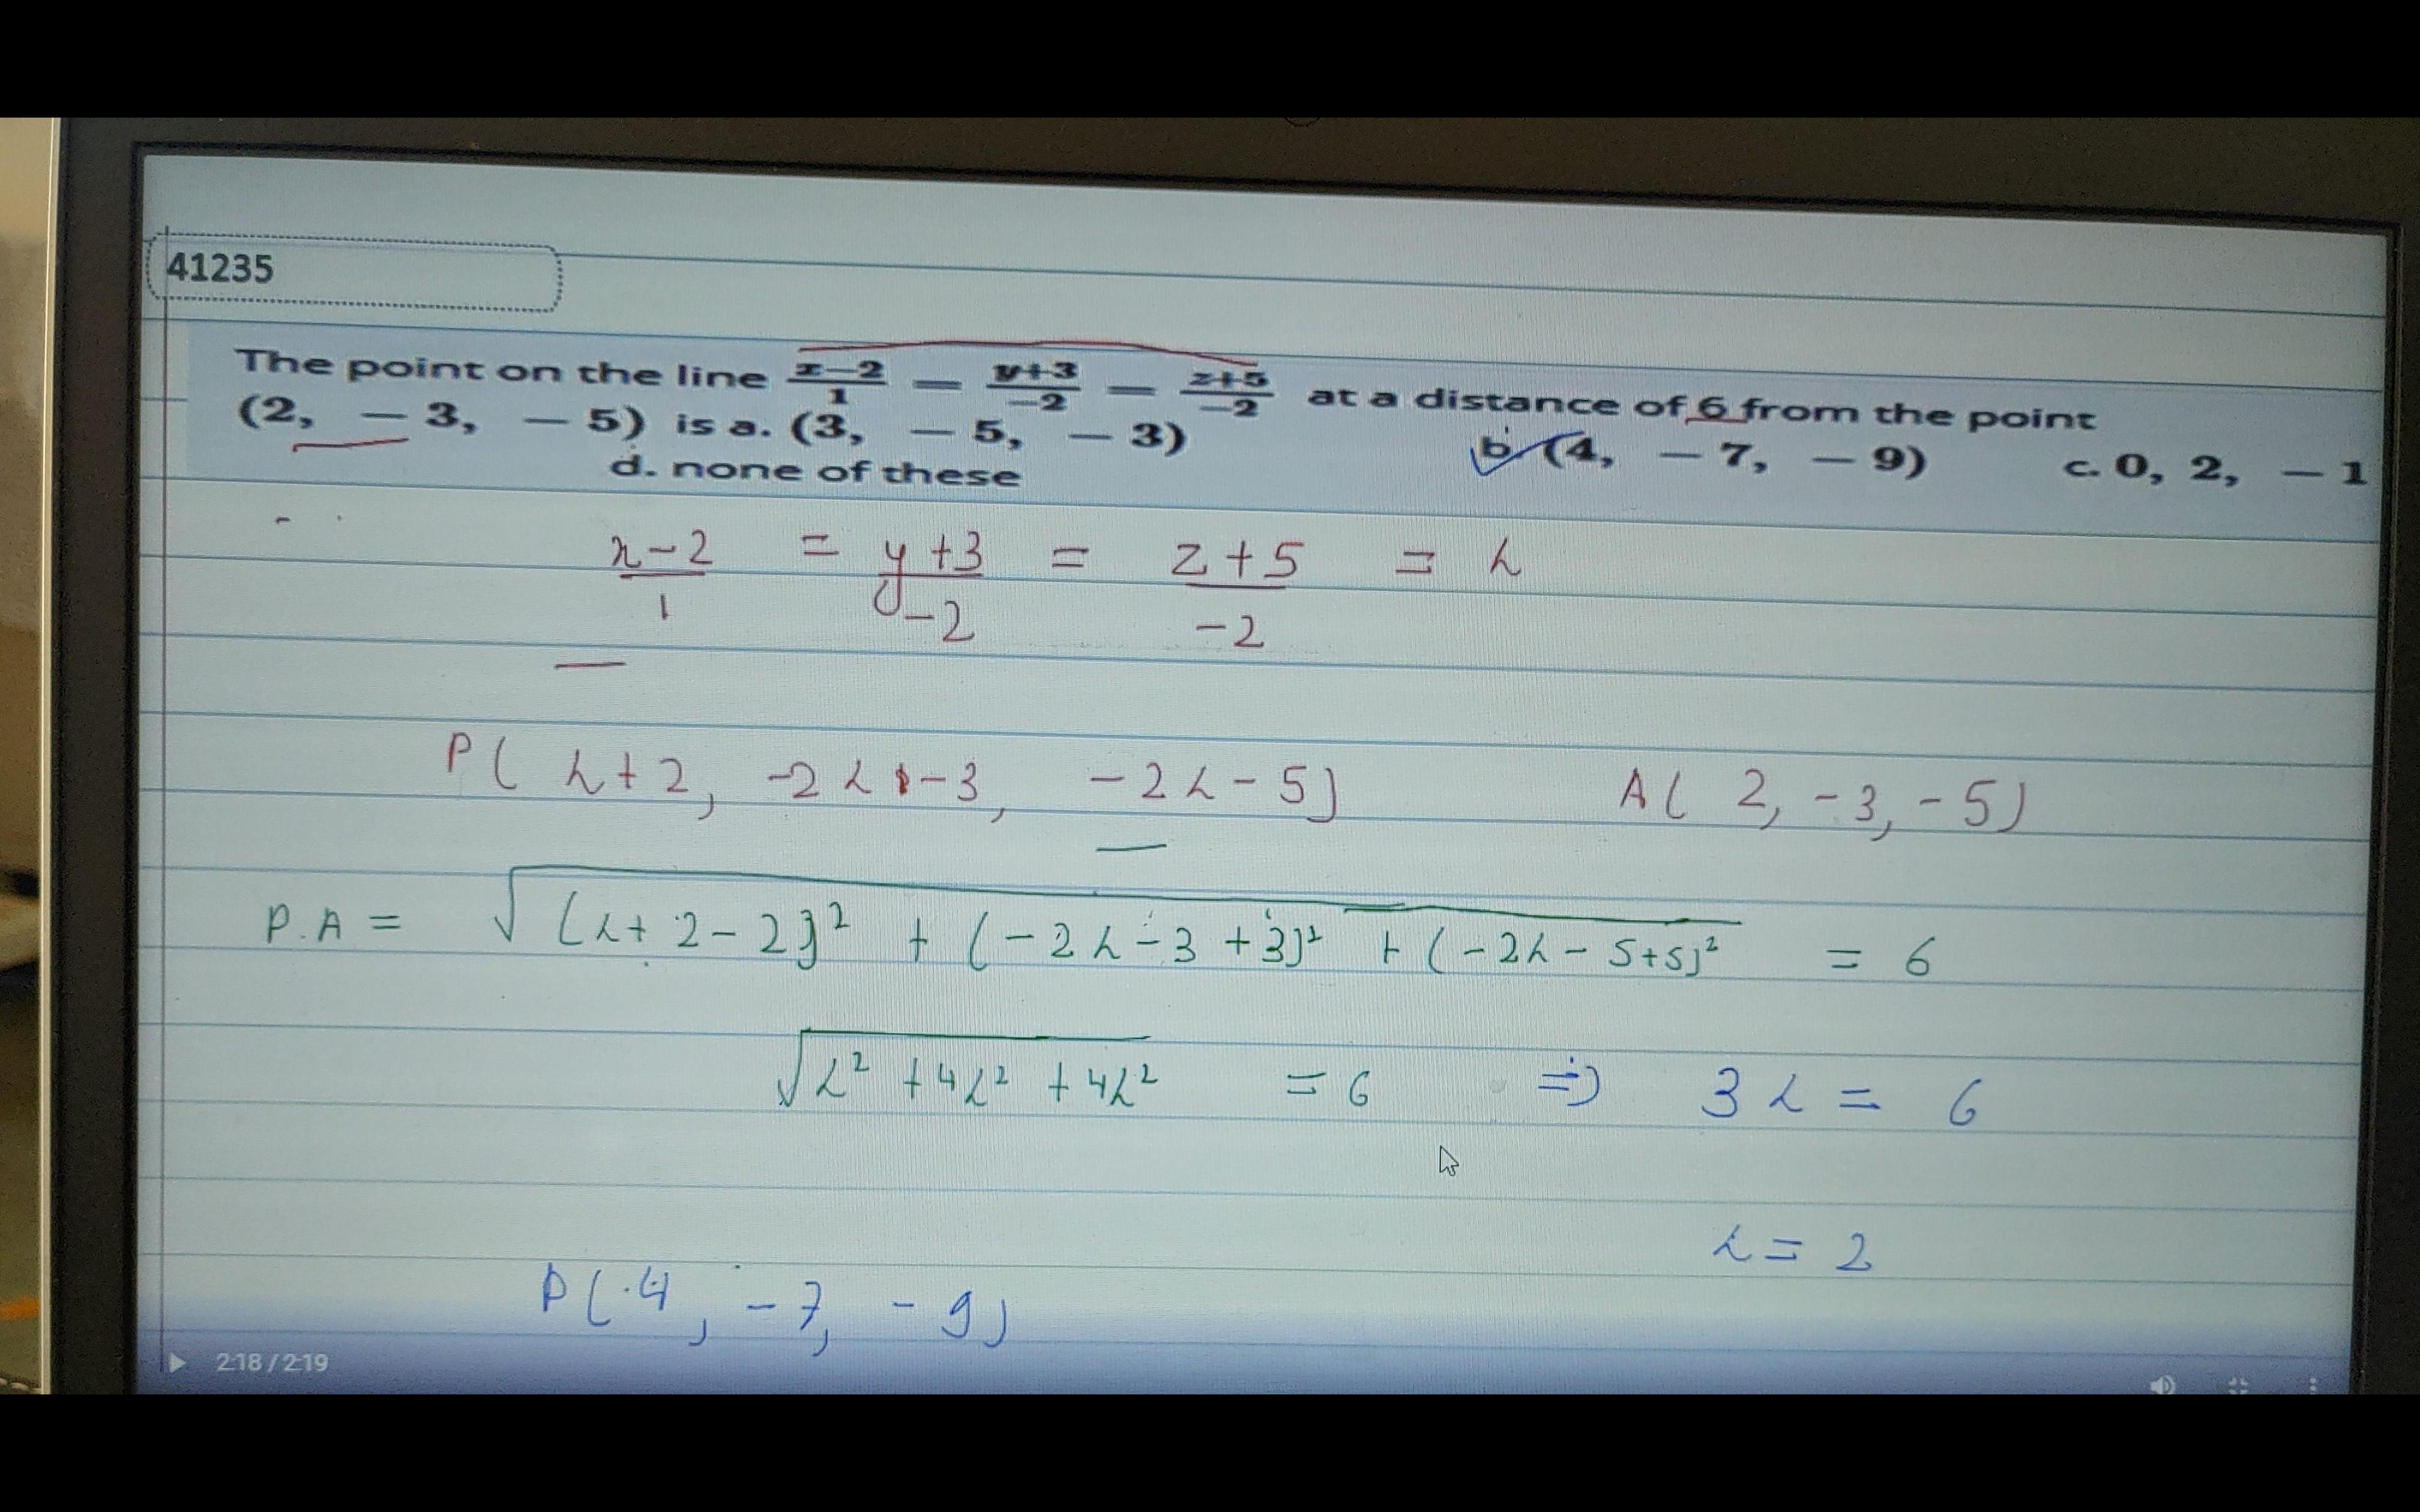 41235
The point on the line (x-2)/1 = (y+3)/-2 = (z+5)/-2 at a distance of 6 from the point
(2, -3, -5) is a. (3, -5, -3) b. (4, -7, -9) c. 0, 2, -1
d. none of these
(x-2)/1 = (y+3)/-2 = (z+5)/-2 = λ
P( λ+2, -2λ-3, -2λ-5) A( 2, -3, -5)
P.A = √((λ+2-2)² + (-2λ-3+3)² + (-2λ-5+5)²) = 6
√(λ² + 4λ² + 4λ²) = 6 ⇒ 3λ = 6
λ = 2
P(4, -7, -9)
2:18 / 2:19